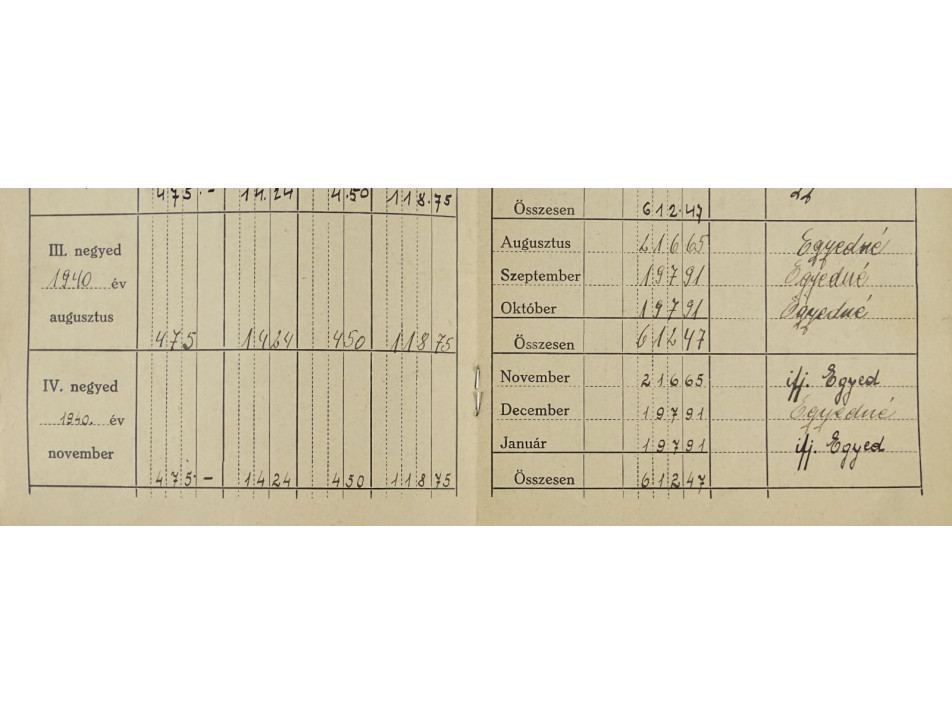 475.- 14.24 4.50 118.75
III. negyed
1940 év
augusztus
475 1424 450 1 1875
IV. negyed
1940. év
november
475.- 1424 450 11875
Összesen 612.47
Augusztus 21665 Egyedné
Szeptember 19791 Egyedné
Október 19791 Egyedné
Összesen 61247
November 21665 ifj. Egyed
December 19791 Egyedné
Január 19791 ifj. Egyed
Összesen 61247